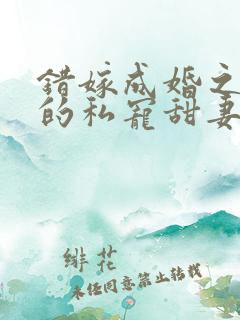 错嫁成婚之
的私宠甜妻
绯花
未经同意禁止转载